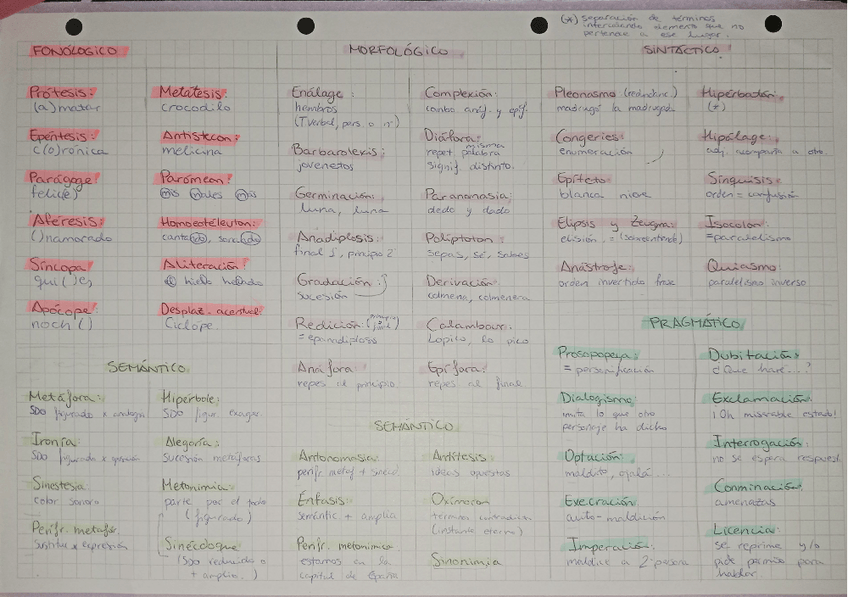 (*) separación de términos
intercalando elemento que no
pertenece a ese lugar.
FONOLÓGICO
Prótesis:
(a)matar
Epéntesis:
c(o)rónica
Parágoge:
felic(e)
Aféresis:
()namorado
Síncopa:
Apócope:
noch()
Metátesis:
crocodilo
Antistecon:
melicina
Parómeon:
mis males más
Homoeotéleuton:
Aliteración:
hielo helado
Desplaz. acentual
Cíclope.
MORFOLÓGICO
Enálage:
hembros
(T verbal, pers. o nº)
Barbarolexis:
jovenetos
Germinación:
luna, luna
Anadiplosis:
final 1, principio 2
Gradación:
sucesión
Redición:
= epanadiplosis
Anáfora:
repes al principio
Complexión:
combo anáf. y epíf.
Diáfora:
repet misma palabra
signif distinto.
Paranomasia:
dedo y dado
Políptoton:
sepas, sé, sabes
Derivación:
colmena, colmenera
Calambour:
Lopico, lo pico
Epífora:
repes al final
SINTÁCTICO
Pleonasmo (redundanc.)
madrugó la madrugada
Congeries:
enumeración
Epíteto:
blanca nieve
Elipsis y Zeugma:
elisión = (sobreentiende)
Anástrofe:
orden invertido frase
Hipérbaton:
(*)
Hipálage:
adj. acompaña a otro.
Sínquisis:
orden = confusión
Isocolon:
= paralelismo
Quiasmo:
paralelismo inverso
SEMÁNTICO
Metáfora:
SDO figurado x analogía
Ironía:
SDO figurado x
Sinestesia:
color sonoro
Perífr. metafór.
sustituye x expresión
Hipérbole:
SDO figur. exager.
Alegoría:
sucesión metáforas
Metonimia:
parte por el todo
(figurado)
Sinécdoque:
(SDO reducido o
+ amplio.)
SEMÁNTICO
Antonomasia:
perífr metaf + sinécd
Énfasis:
semántic + amplia
Perífr. metonímica:
estamos en la
capital de España
Antítesis:
ideas opuestas
Oxímoron:
términos contradictorios
(instante eterno)
Sinonimia
PRAGMÁTICO
Prosopopeya:
= personificación
Dialogismo:
imita lo que otro
personaje ha dicho
Optación:
maldito, ojalá...
Execración:
auto-maldición
Imperación:
maldice a 2ª persona
Dubitación:
¿Que haré...?
Exclamación:
¡Oh miserable estado!
Interrogación:
no se espera respuest
Conminación:
amenazas
Licencia:
se reprime y/o
pide permiso para
hablar.